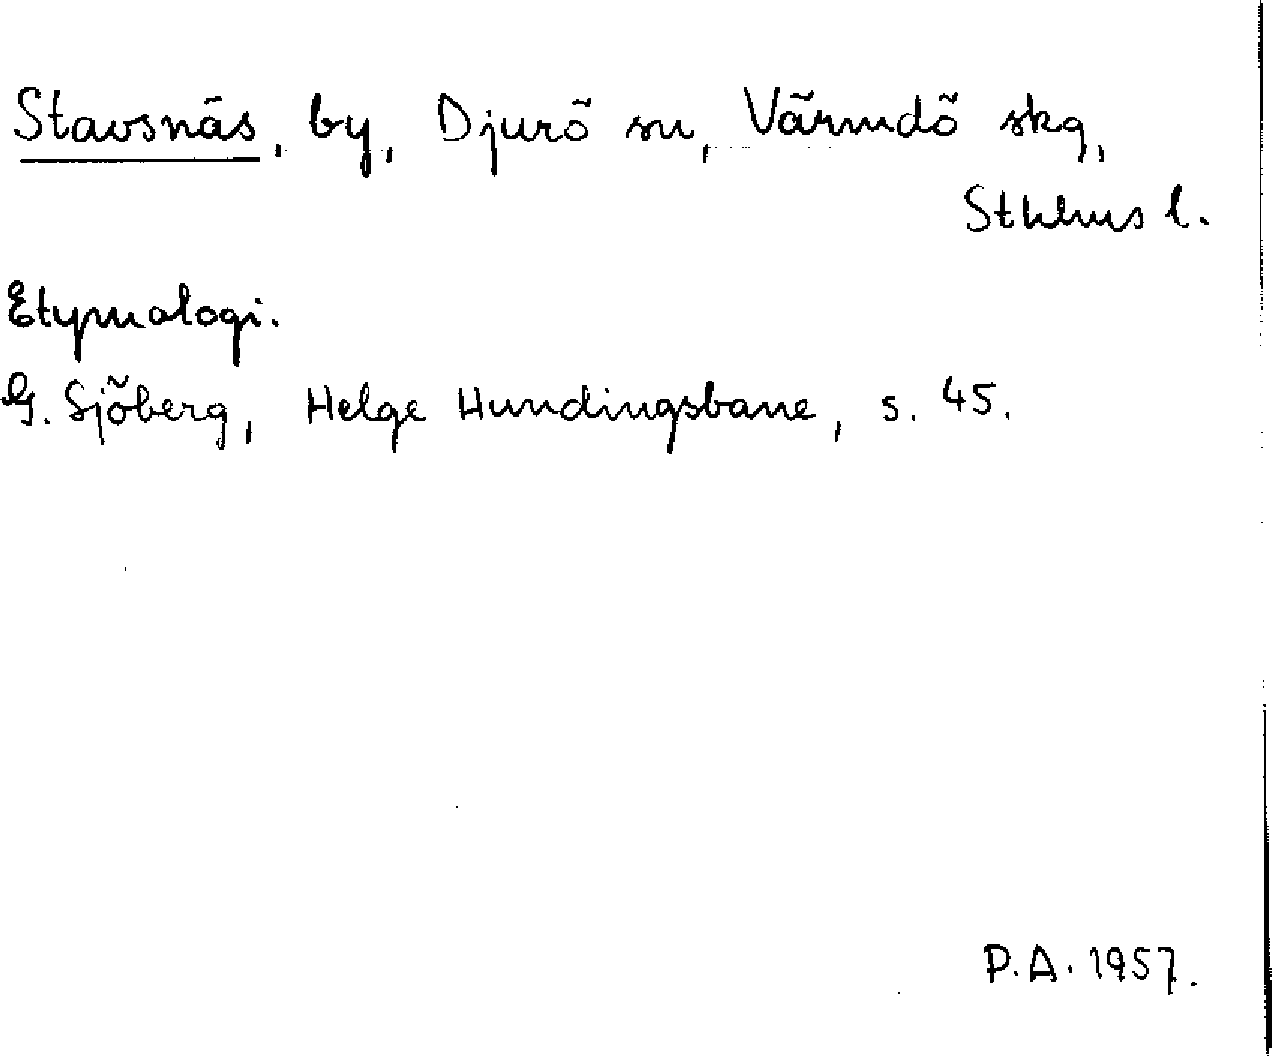 Stavsnäs, by, Djurö sn, Värmdö skg,
Sthlms l.
Etymologi.
G. Sjöberg, Helge Hundingsbane, s. 45.
P.A. 1957.